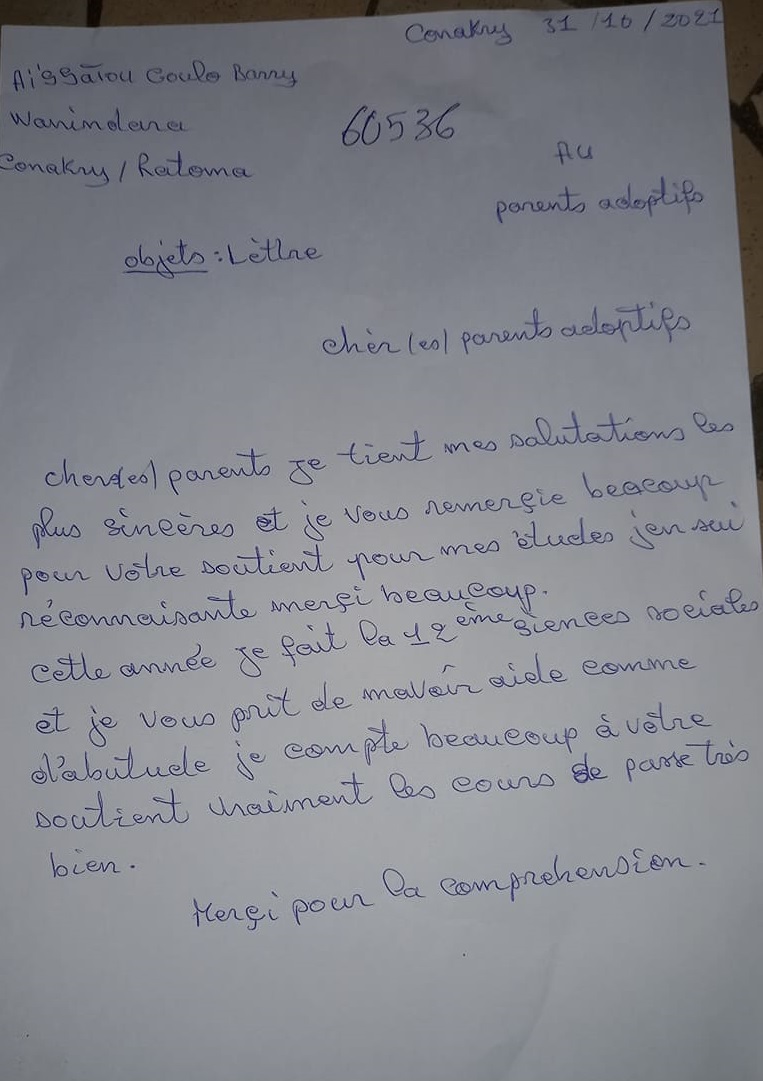 Conakry 31/10/2021
Aïssatou Goulo Barry
Wanindara
60536
Conakry / Ratoma
Au
parents adoptifs
objets : Lèttre
chèr(es) parents adoptifs
cher(es) parents je tient mes salutations les
plus sincères et je vous remerçie beacoup
pour vôtre soutient pour mes études j'en sui
réconnaisante merçi beaucoup.
cette année je fait la 12ème siences sociales
et je vous prit de mavoir aide comme
d'abutude je compte beaucoup à vôtre
soutient vraiment les cours se passe très
bien.
Merçi pour la comprehension.